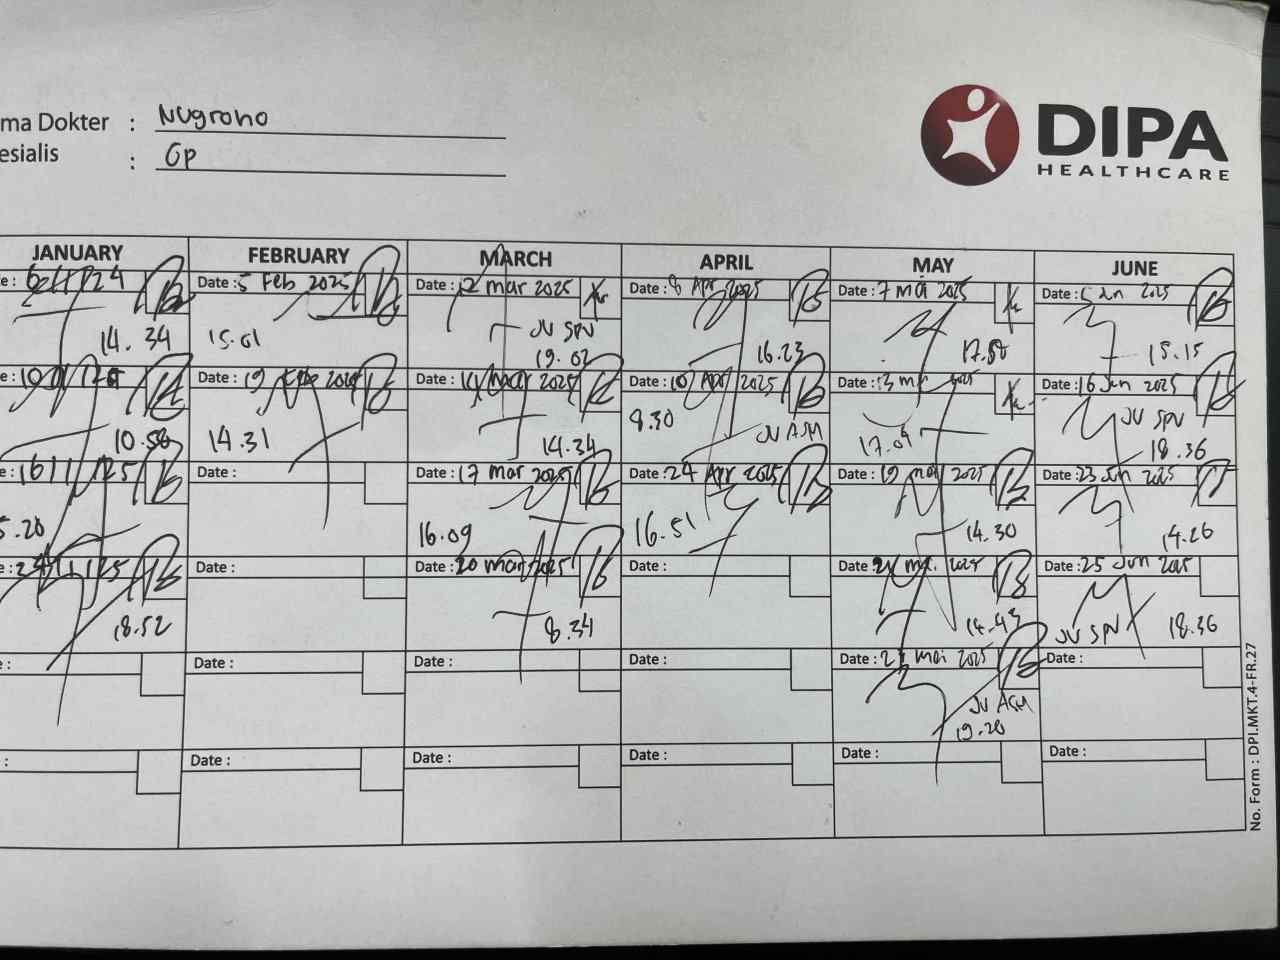 ma Dokter : Nugroho
esialis : Gp
DIPA
HEALTHCARE
JANUARY FEBRUARY MARCH APRIL MAY JUNE
Date : 5 Feb 2025 Date : 12 mar 2025 Date : 8 Apr 2025 Date : 7 mei 2025 Date : 5 Jun 2025
14.34 15.01 JV SPV 19.02 16.23 15.15
Date : 19 Feb 2025 Date : 14 mar 2025 Date : 10 Apr 2025 Date : 13 mei 2025 Date : 16 Jun 2025
10.58 14.31 14.34 8.30 JV ASM JV SPV 18.36
16/1/25 Date : Date : 17 mar 2025 Date : 24 Apr 2025 Date : 19 mei 2025 Date : 23 Jun 2025
5.20 16.09 16.51 14.30 14.26
Date : Date : 20 mar 2025 Date : Date : mei 2025 Date : 25 Jun 2025
18.52 8.34 14.43 JV SPV 18.36
Date : Date : Date : Date : mei 2025 Date :
JV ASM
19.20
Date : Date : Date : Date : Date :
No. Form : DPI.MKT.4-FR.27